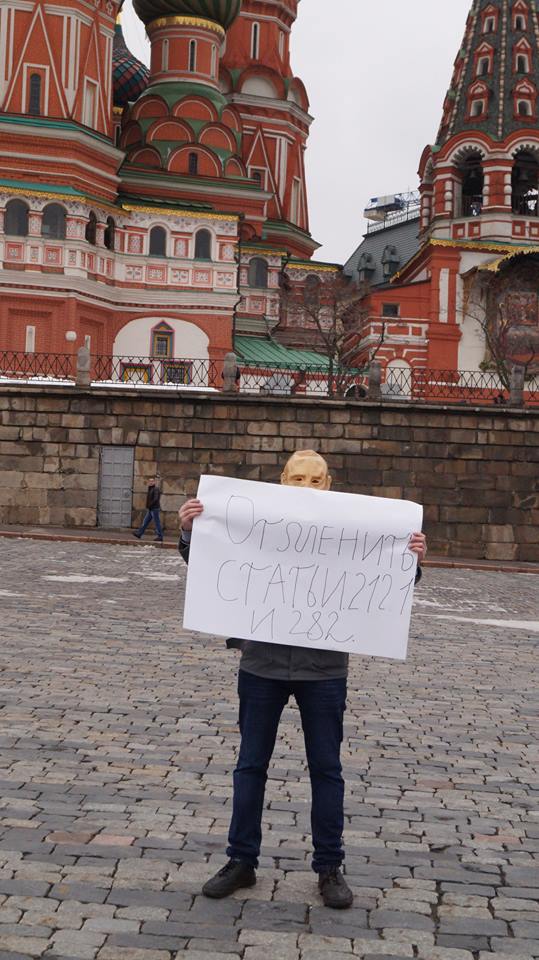 ОТМЕНИТЬ
СТАТЬИ 212.1
И 282.